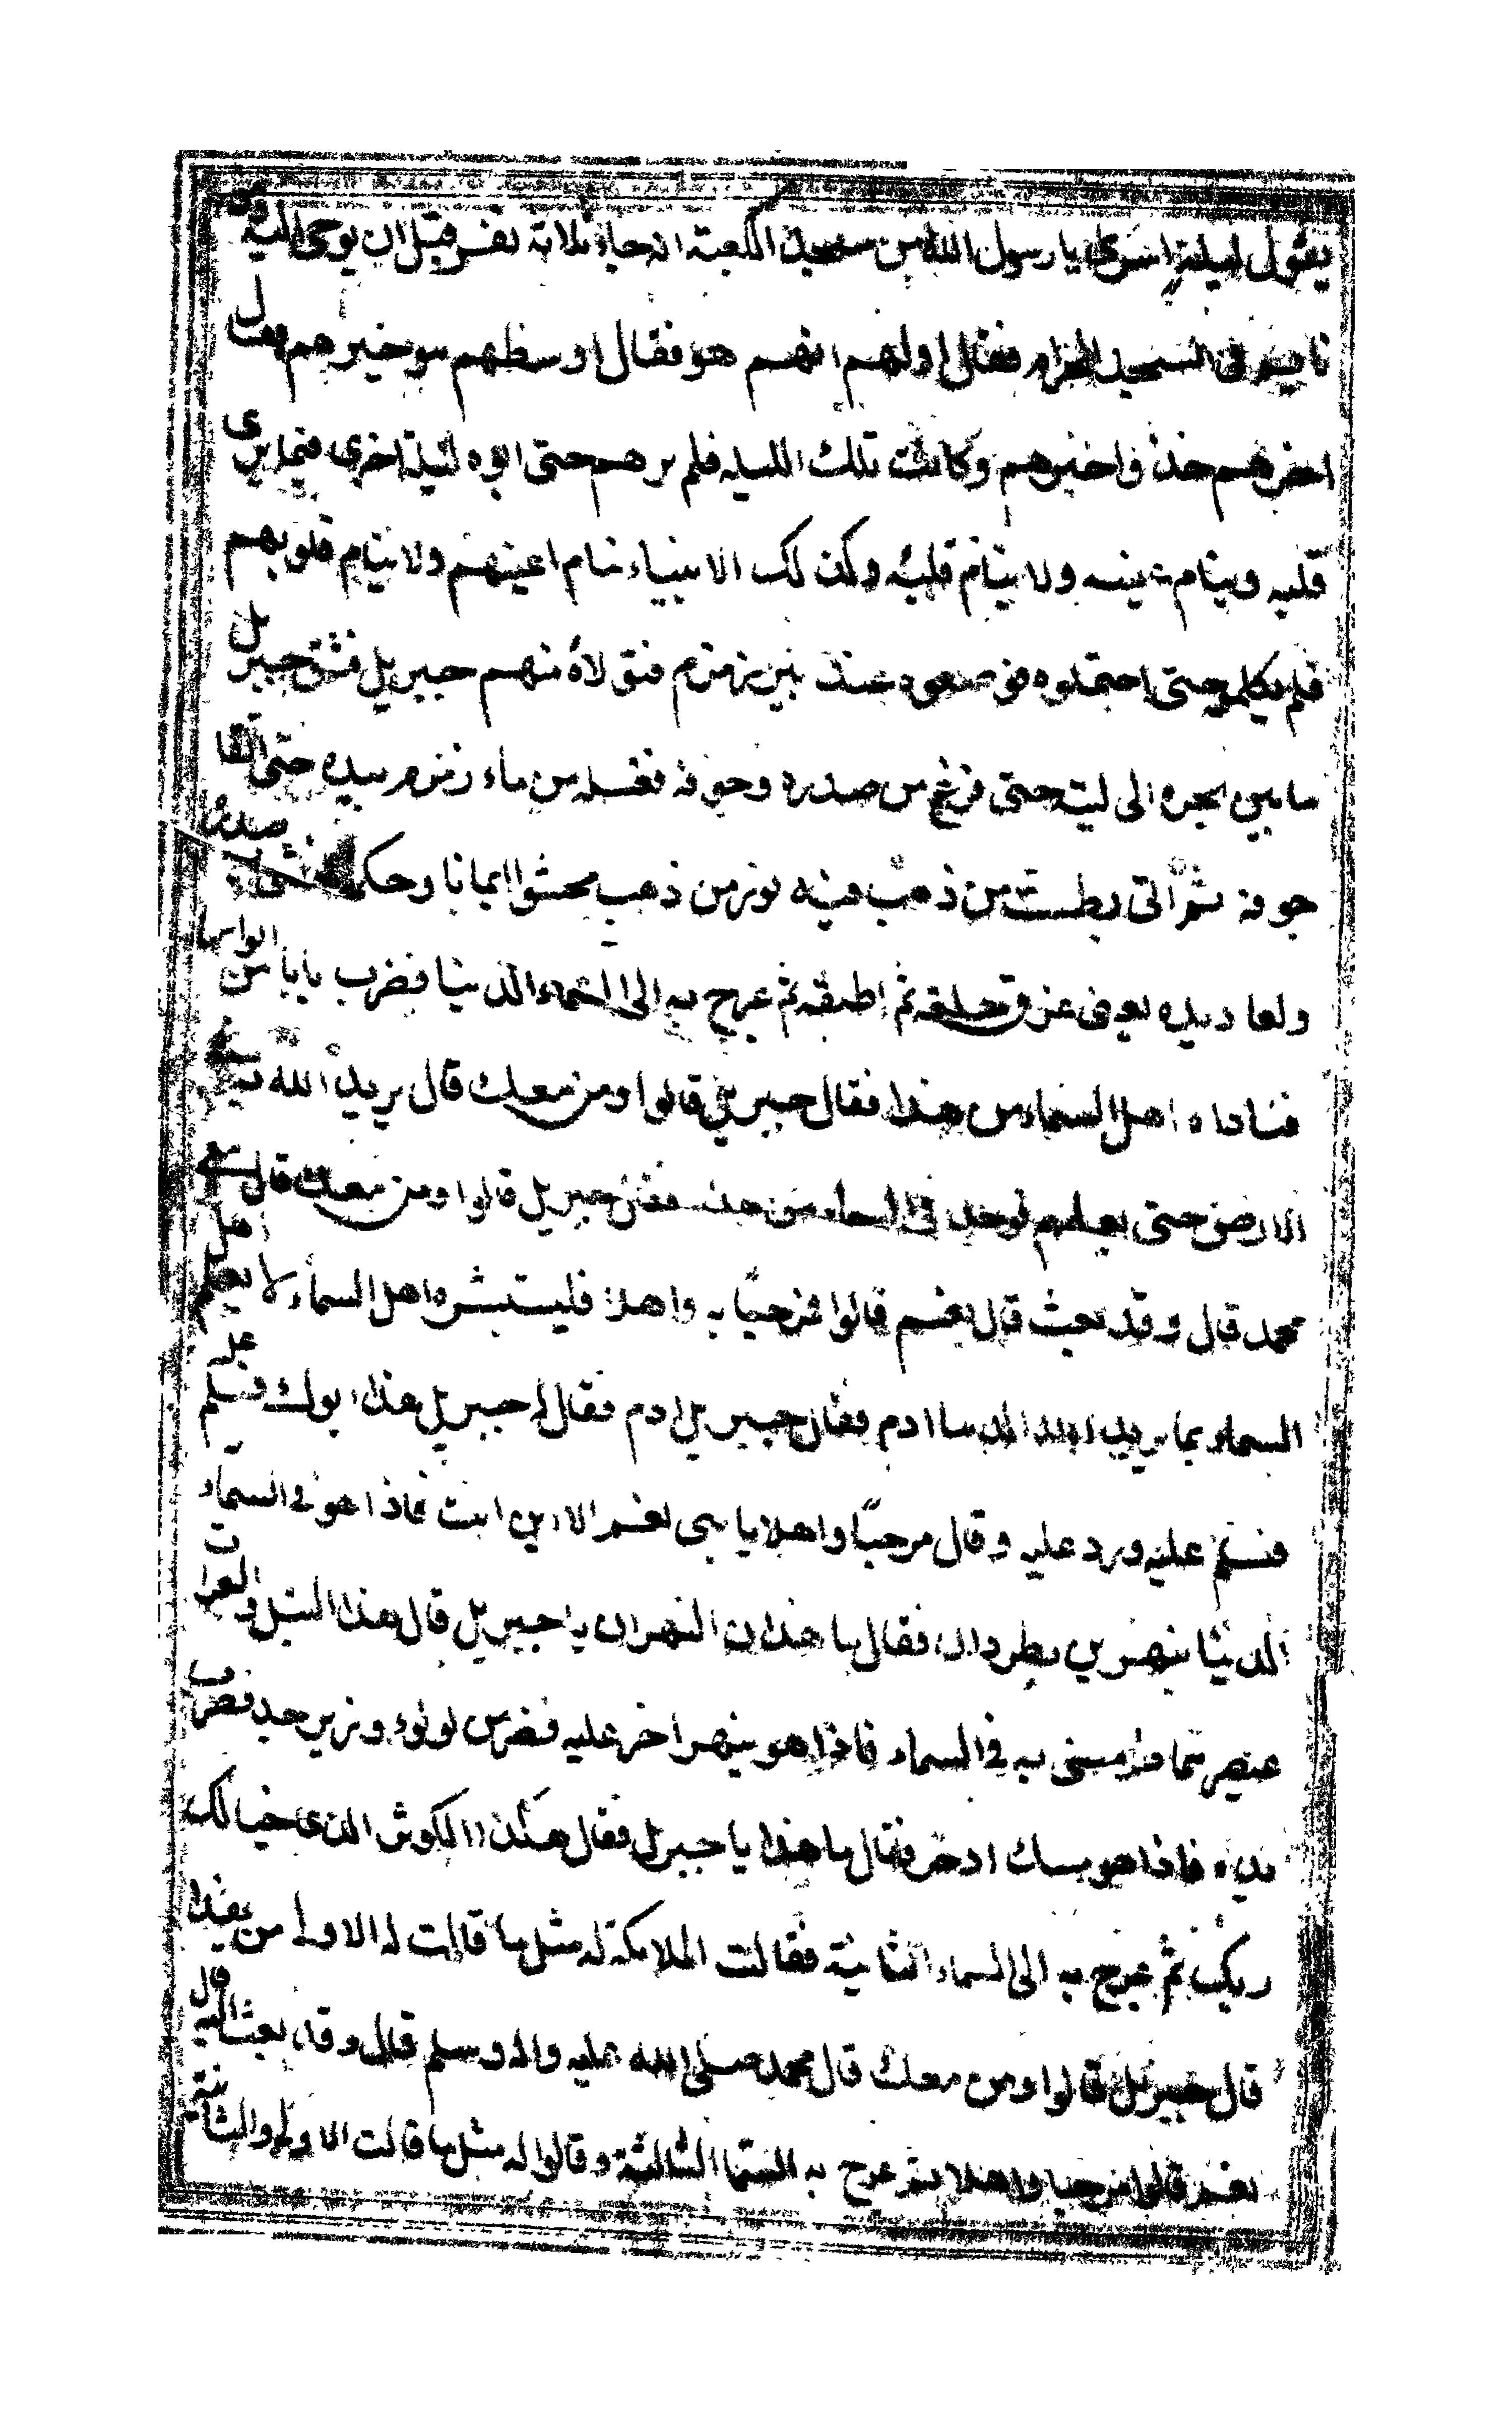 يقول ليلة اسرى يا رسول الله من مسجد الكعبة انه جاءه ثلاثة نفر قبل ان يوحى اليه وهو
نايم فى المسجد الحرام فقال اولهم ايهم هو فقال اوسطهم هو خيرهم فقال
اخرهم خذوا خيرهم وكانت تلك الليله فلم يرهم حتى اتوه ليلة اخرى فيما يرى
قلبه وينام عينه ولا ينام قلبه وكذلك الانبياء تنام اعينهم ولا ينام قلوبهم
فلم يكلموه حتى احتملوه فوضعوه عند بئر زمزم فتولاه منهم جبريل فشق جبريل
ما بين نحره الى لبته حتى فرغ من صدره وجوفه فغسله من ماء زمزم بيده حتى القا
جوفه ثم اتى بطست من ذهب فيه تور من ذهب محشوا ايمانا وحكمة فحشا به صدره
ولغاديده يعنى عروق حلقه ثم اطبقه ثم عرج به الى السماء الدنيا فضرب بابا من ابوابها
فناداه اهل السماء من هذا فقال جبريل قالوا ومن معك قال يريد الله به
الارض حتى يعلمهم فى السماء من هذا فقال جبريل قالوا ومن معك قال معى
محمد قال وقد بعث قال نعم قالوا مرحبا به واهلا فليستبشره اهل السماء لا يعلم اهل
السماء بما يريد الله الدنيا ادم فقال جبريل ادم فقال له جبريل هذا ابوك فسلم عليه
فسلم عليه ورد عليه وقال مرحبا واهلا يا بنى نعم الابن انت فاذا هو فى السماء
الدنيا بنهرين يطردان فقال ما هذان النهران يا جبريل قال هذا النيل والفرات
عنصرهما ثم مضى به فى السماء فاذا هو بنهر اخر عليه قصر من لولوء وزبرجد فضرب
يده فاذا هو مسك ادخر فقال ما هذا يا جبريل فقال هذا الكوثر الذى خبا لك
ربك ثم عرج به الى السماء الثانية فقالت الملائكة له مثل ما قالت له الاولى من هذا
قال جبريل قالوا ومن معك قال محمد صلى الله عليه واله وسلم قال وقد بعث اليه قال
نعم قالوا مرحبا واهلا ثم عرج به السما الثالثة وقالوا له مثل ما قالت الاولى والثانية